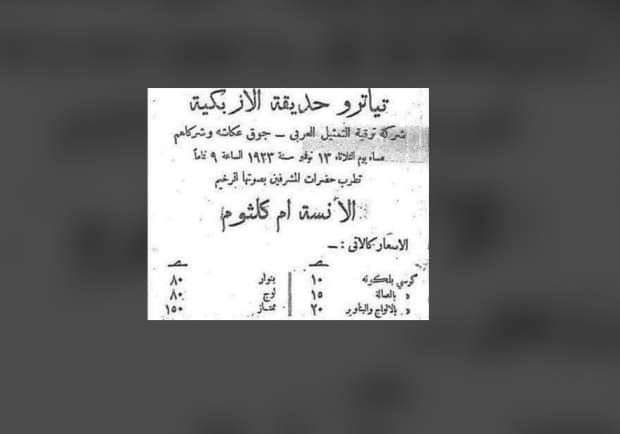 تياترو حديقة الازبكية
شركة ترقية التمثيل العربى – جوق عكاشه وشركاهم
مساء يوم الثلاثاء ١٣ نوفمبر سنة ١٩٢٣ الساعة ٩ تماماً
تطرب حضرات المشرفين بصوتها الرخيم
الآنسة أم كلثوم
الاسعار كالاتى : –
كرسي بلكونه ١٠ بنوار ٨٠
» بالصالة ١٥ لوج ٨٠
» بالالواج والبناوير ٢٠ ممتاز ١٥٠